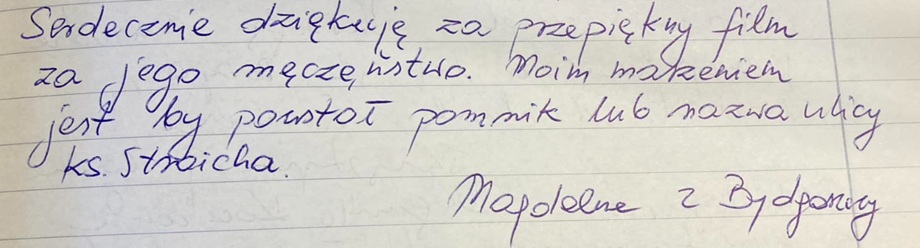 Serdecznie dziękuję za przepiękny film
za jego męczęństwo. Moim marzeniem
jest by powstał pomnik lub nazwa ulicy
ks. Stroicha.
Magdalena z Bydgoszczy